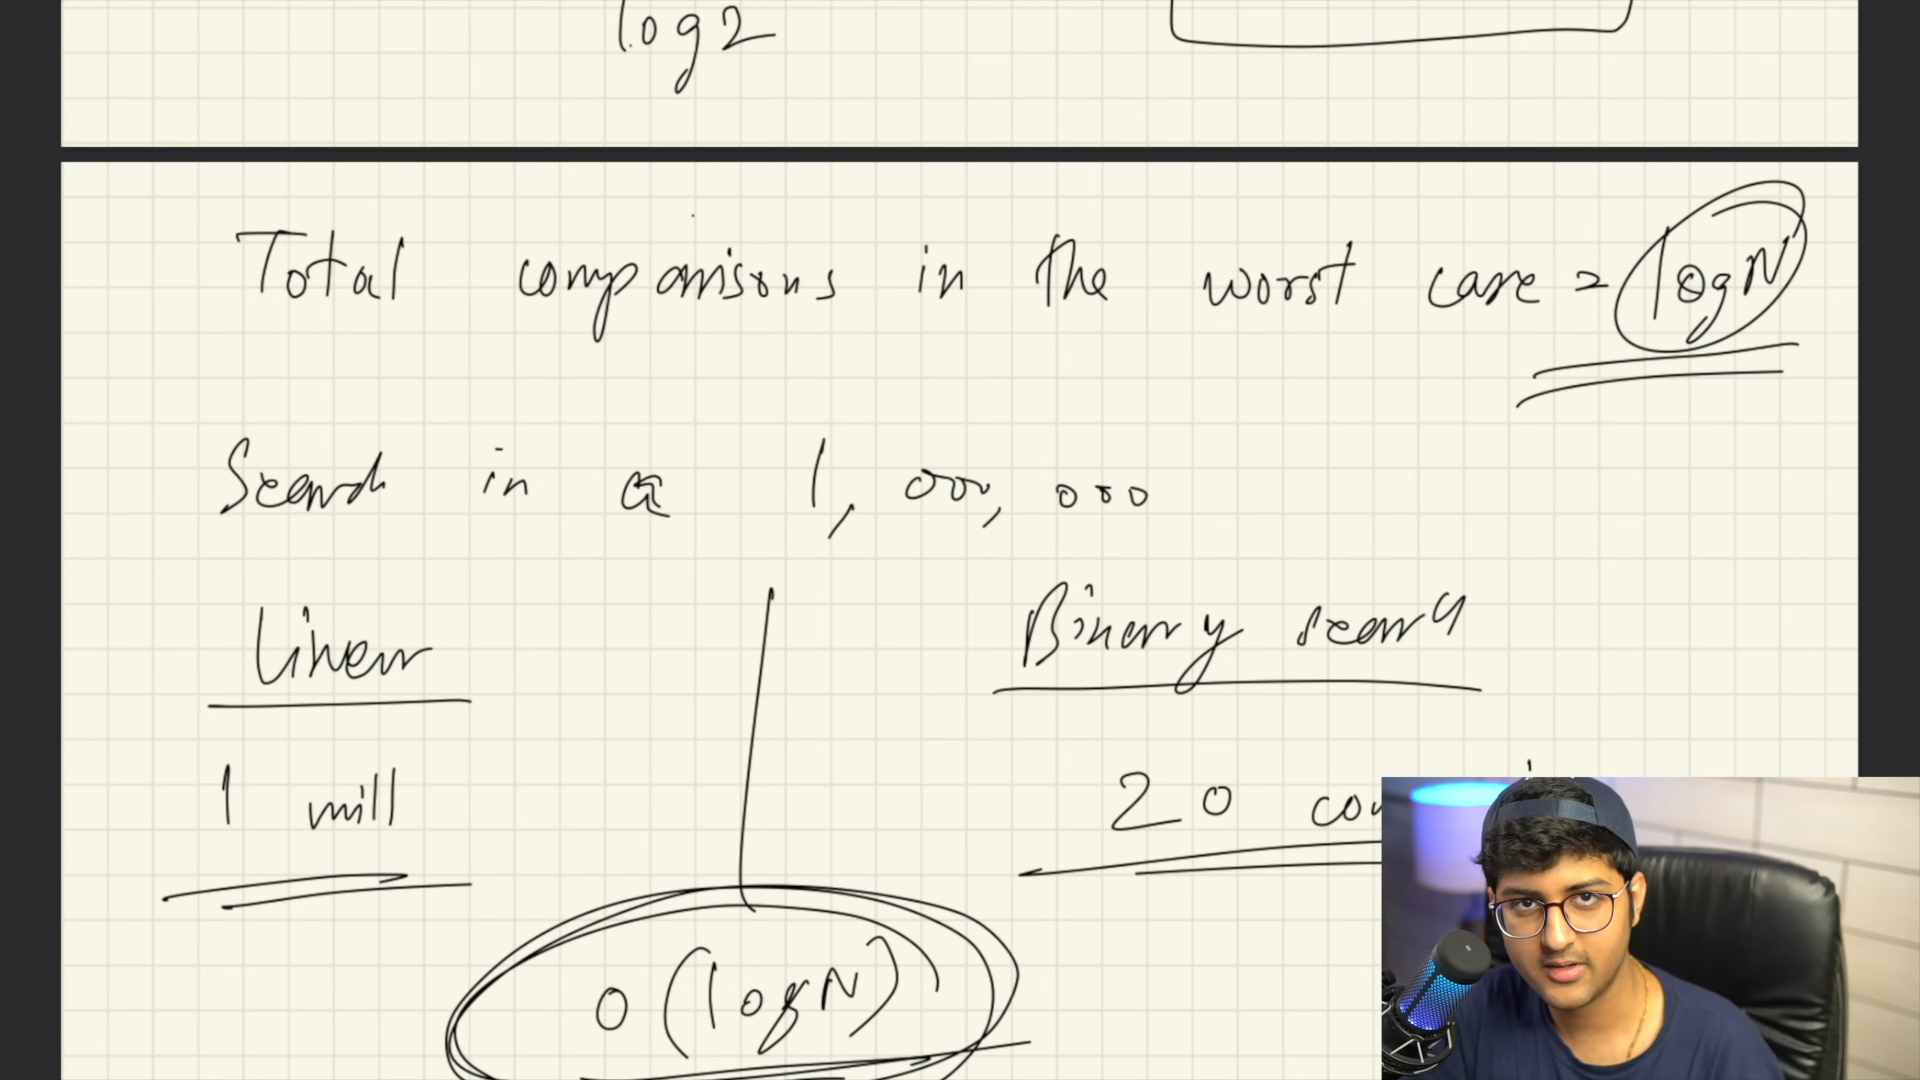 log2
Total comparisons in the worst case = logN
Search in a 1,000,000
Linear
Binary search
1 mill
20
O(logN)